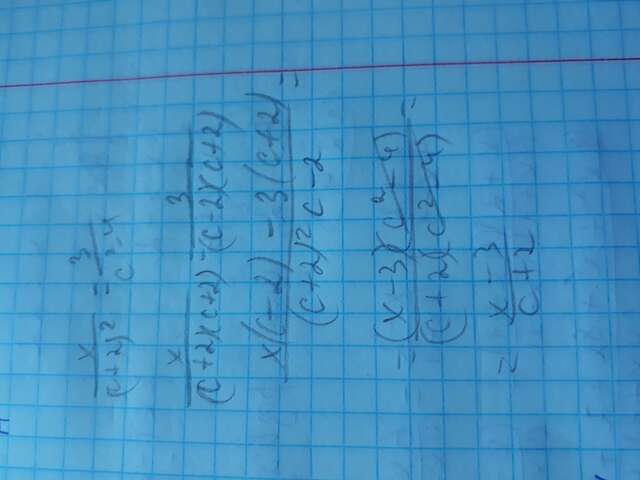 x/(c+2)² - 3/c²-4
x/(c+2)(c+2) - 3/(c-2)(c+2)
x(c-2) - 3(c+2)/(c+2)² c-2 =
= (x-3)(c²-4)/(c+2)(c²-4) =
= x-3/c+2